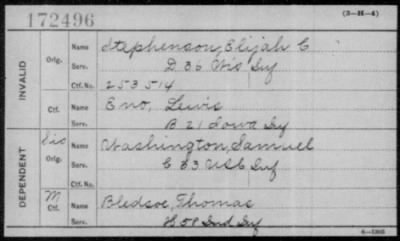 172496 (3-H-4)
INVALID
Orig. Name Stephenson, Elijah C
Serv. D 36 Wis Inf
Ctf. No. 253514
Ctf. Name Eno, Lewis
Serv. B 21 Iowa Inf
DEPENDENT
Orig. Name Washington, Samuel
Serv. C 83 USC Inf
Ctf. No.
M
Ctf. Name Bledsoe, Thomas
Serv. H 58 Ind Inf